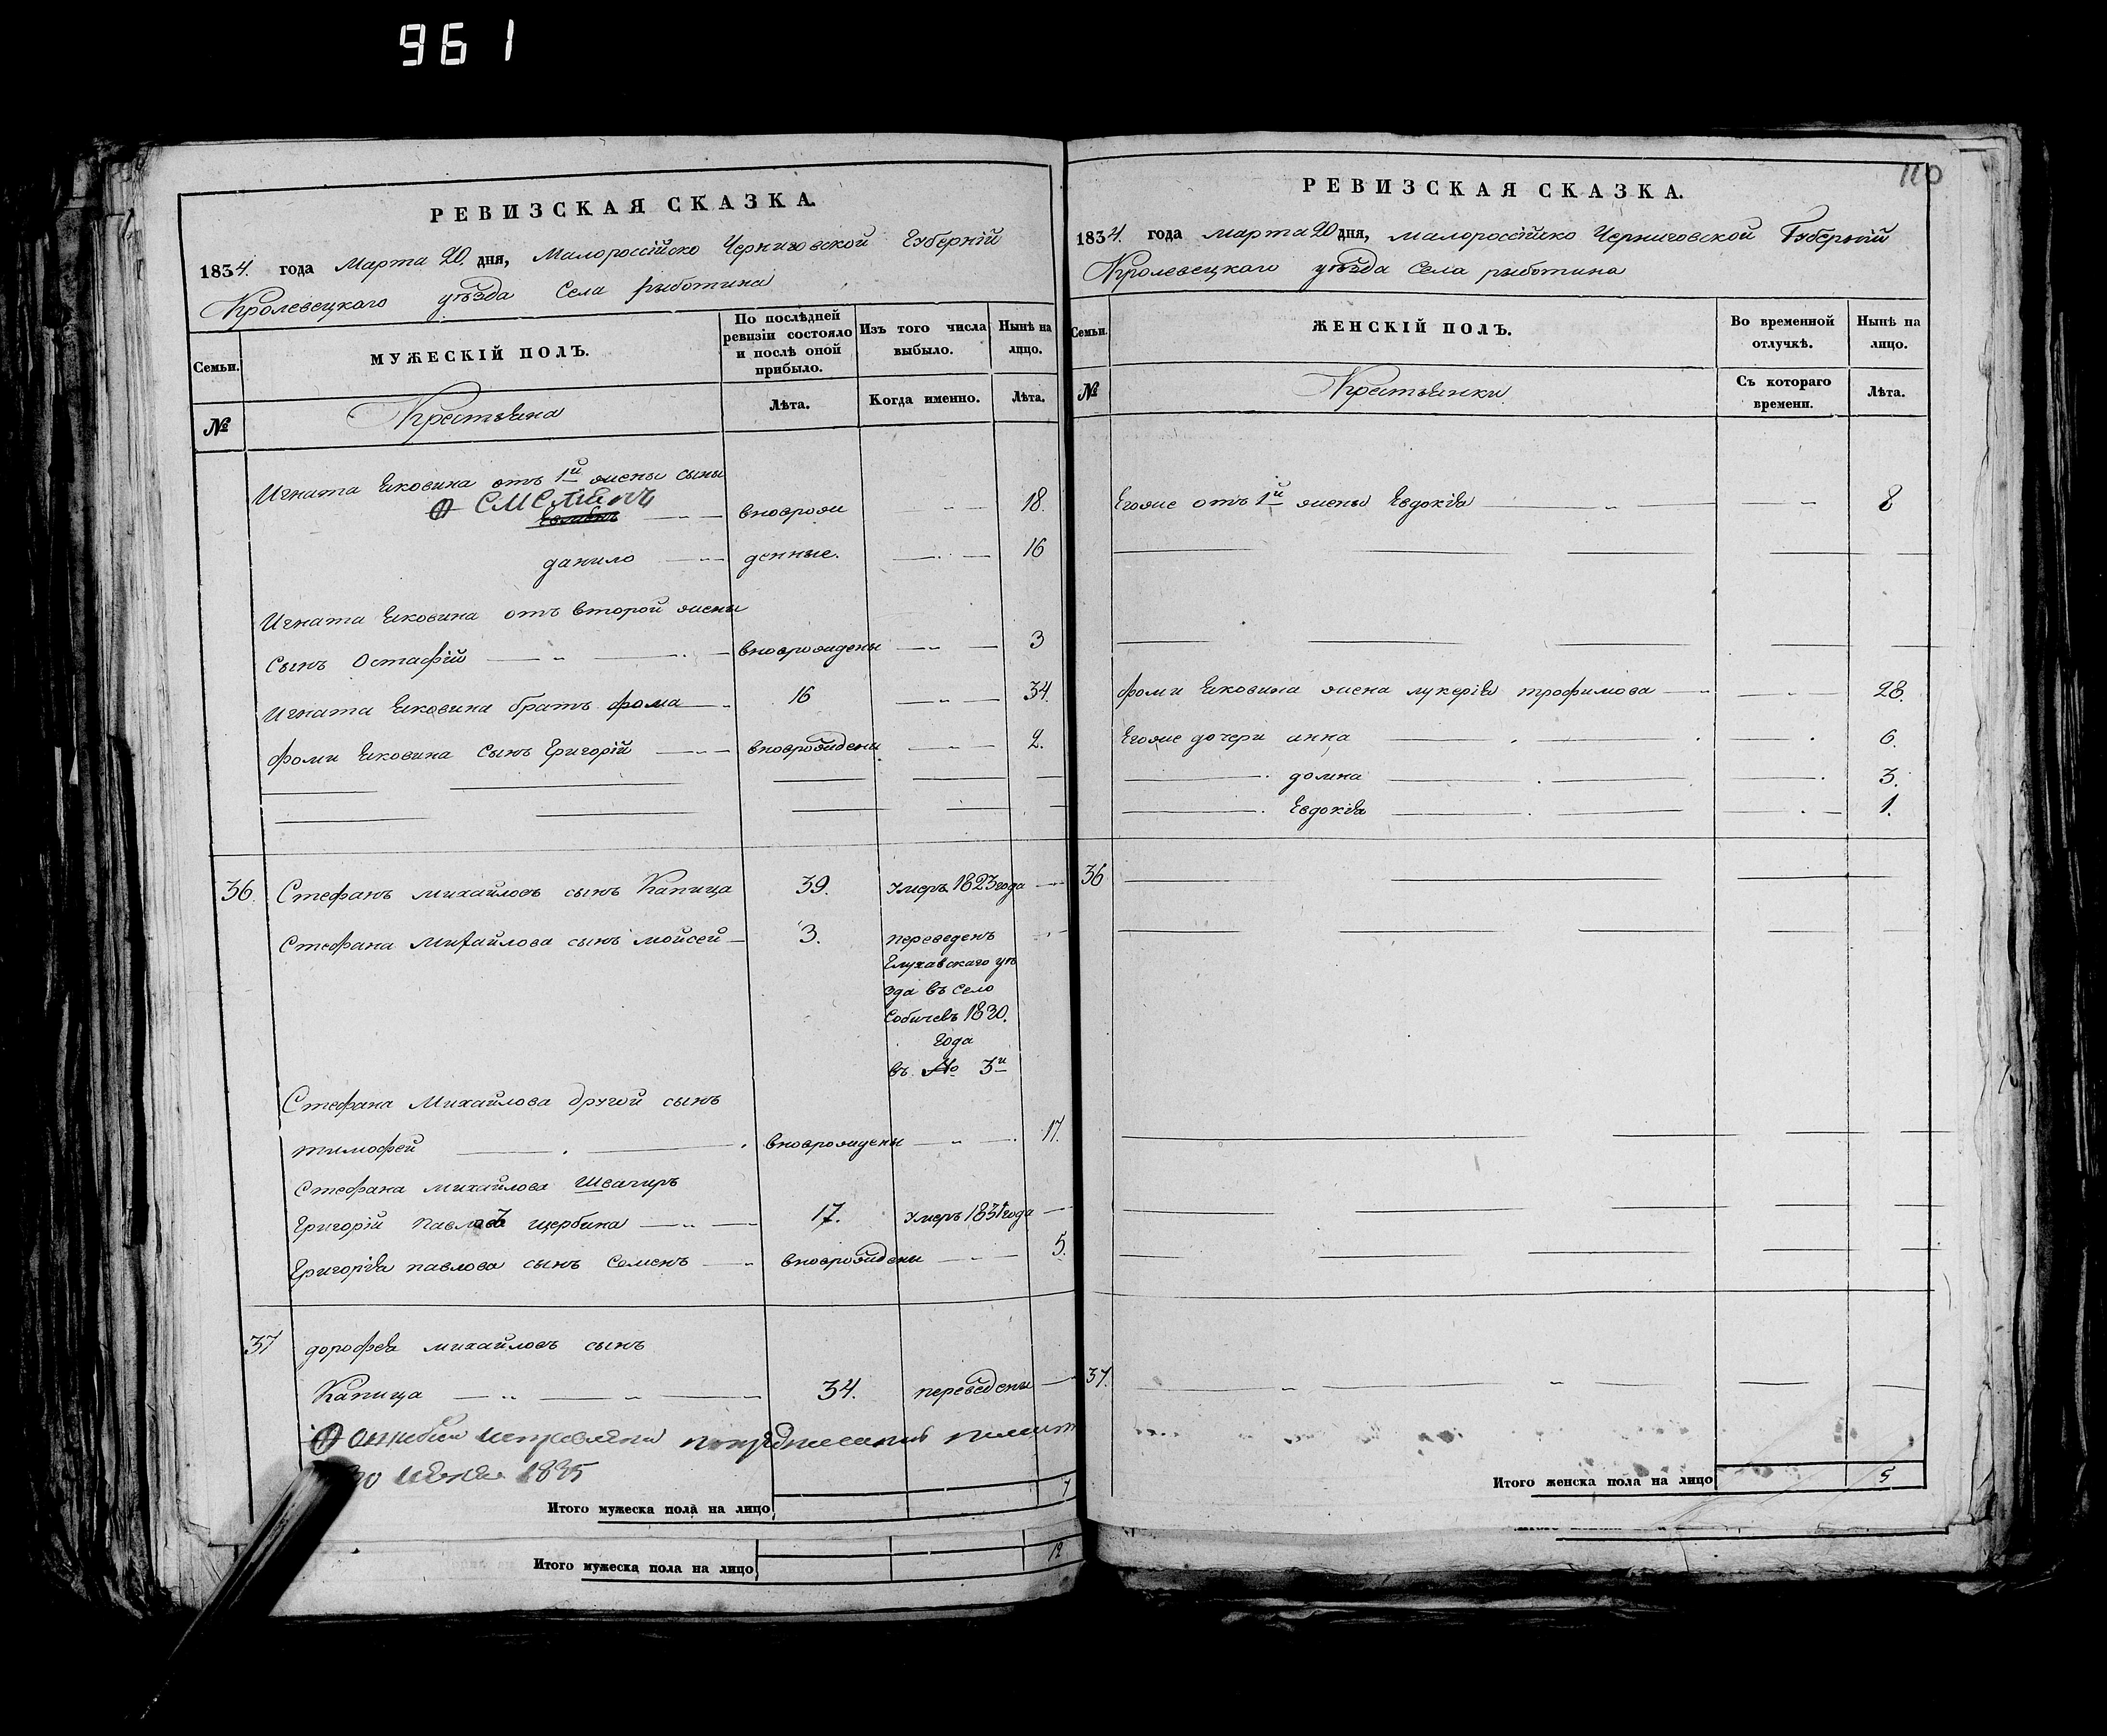 961
РЕВИЗСКАЯ СКАЗКА.
1834. года Марта 20. дня, Малороссійско Черниговской Губерній
Кролевецкаго уѣзда Села рыботина
Семьи.
МУЖЕСКІЙ ПОЛЪ.
По послѣдней ревизіи состояло и послѣ оной прибыло.
Изъ того числа выбыло.
Нынѣ на лицо.
№
Крестьяна
Лѣта.
Когда именно.
Лѣта.
Игната Яковина отъ 1й жены сыны
вноврож 18.
данило денные. 16
Игната Яковина отъ второй жены
Сынъ Остафій вноврождены 3
Игната Яковина братъ фома 16 34.
фоми Яковина Сынъ Григорій вноврождены 2.
36. Стефанъ михайловъ сынъ Капица 39. Умеръ 1823 года
Стефана Михайлова сынъ мойсей 3. переведенъ
Глухавскаго уѣ
зда въ село
Собичевъ 1830.
года
въ № 3й
Стефана Михайлова другой сынъ
тимофей вноврождены 17.
Стефана михайлова Швагиръ
Григорій павловъ щербина 17. Умеръ 1831 года
Григорія павлова сынъ Семенъ вноврождены 5.
37 дорофея михайловъ сынъ
Капица 34. переведены
1835
Итого мужеска пола на лицо 7
Итого мужеска пола на лицо 12
110
РЕВИЗСКАЯ СКАЗКА.
1834. года марта 20 дня, малороссійско Черниговской Губерній
Кролевецкаго уѣзда Села рыботина
Семьи.
ЖЕНСКІЙ ПОЛЪ.
Во временной отлучкѣ.
Нынѣ на лицо.
№
Крестьянки
Съ котораго времени.
Лѣта.
Егоже отъ 1й жены Евдокія 8
фоми Яковина жена лукерія трофимова 28.
Егоже дочери анна 6.
домна 3.
Евдокія 1.
36
37.
Итого женска пола на лицо 5